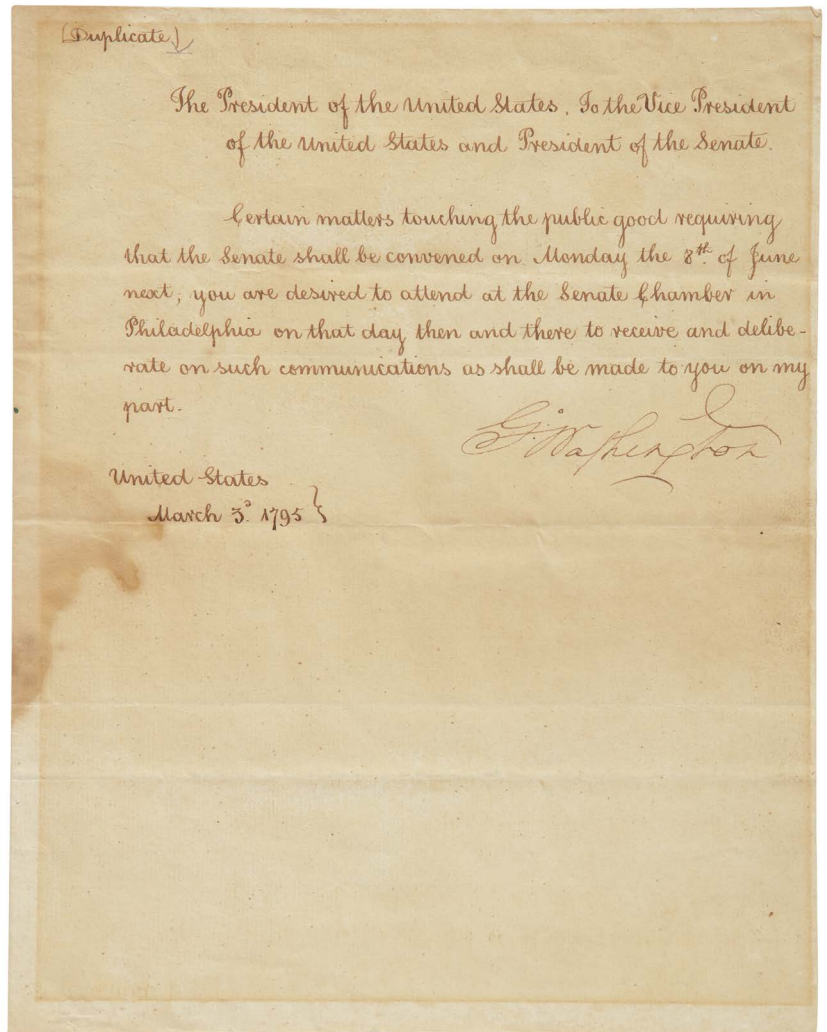 (Duplicate)
The President of the United States, To the Vice President
of the United States and President of the Senate.
Certain matters touching the public good requiring
that the Senate shall be convened on Monday the 8th. of June
next, you are desired to attend at the Senate Chamber in
Philadelphia on that day then and there to receive and delibe-
rate on such communications as shall be made to you on my
part.
G. Washington
United States
March 3d. 1795 }